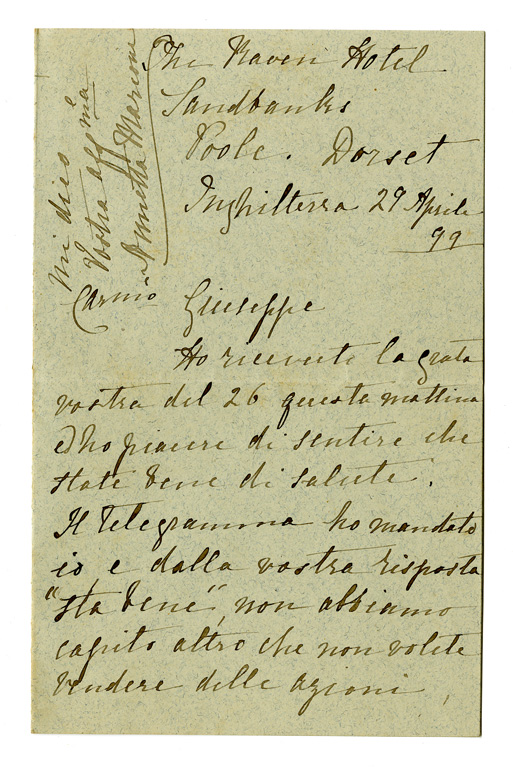 The Haven Hotel
Sandbanks
Poole. Dorset
Inghilterra 29 Aprile
99
Carmo Giuseppe
Ho ricevuto la grata
vostra del 26 questa mattina
ed ho piacere di sentire che
state bene di salute.
Il telegramma ho mandato
io e dalla vostra risposta
"sta bene", non abbiamo
capito altro che non volete
vendere delle azioni
mi dico
Vostra affma
Annetta Marconi